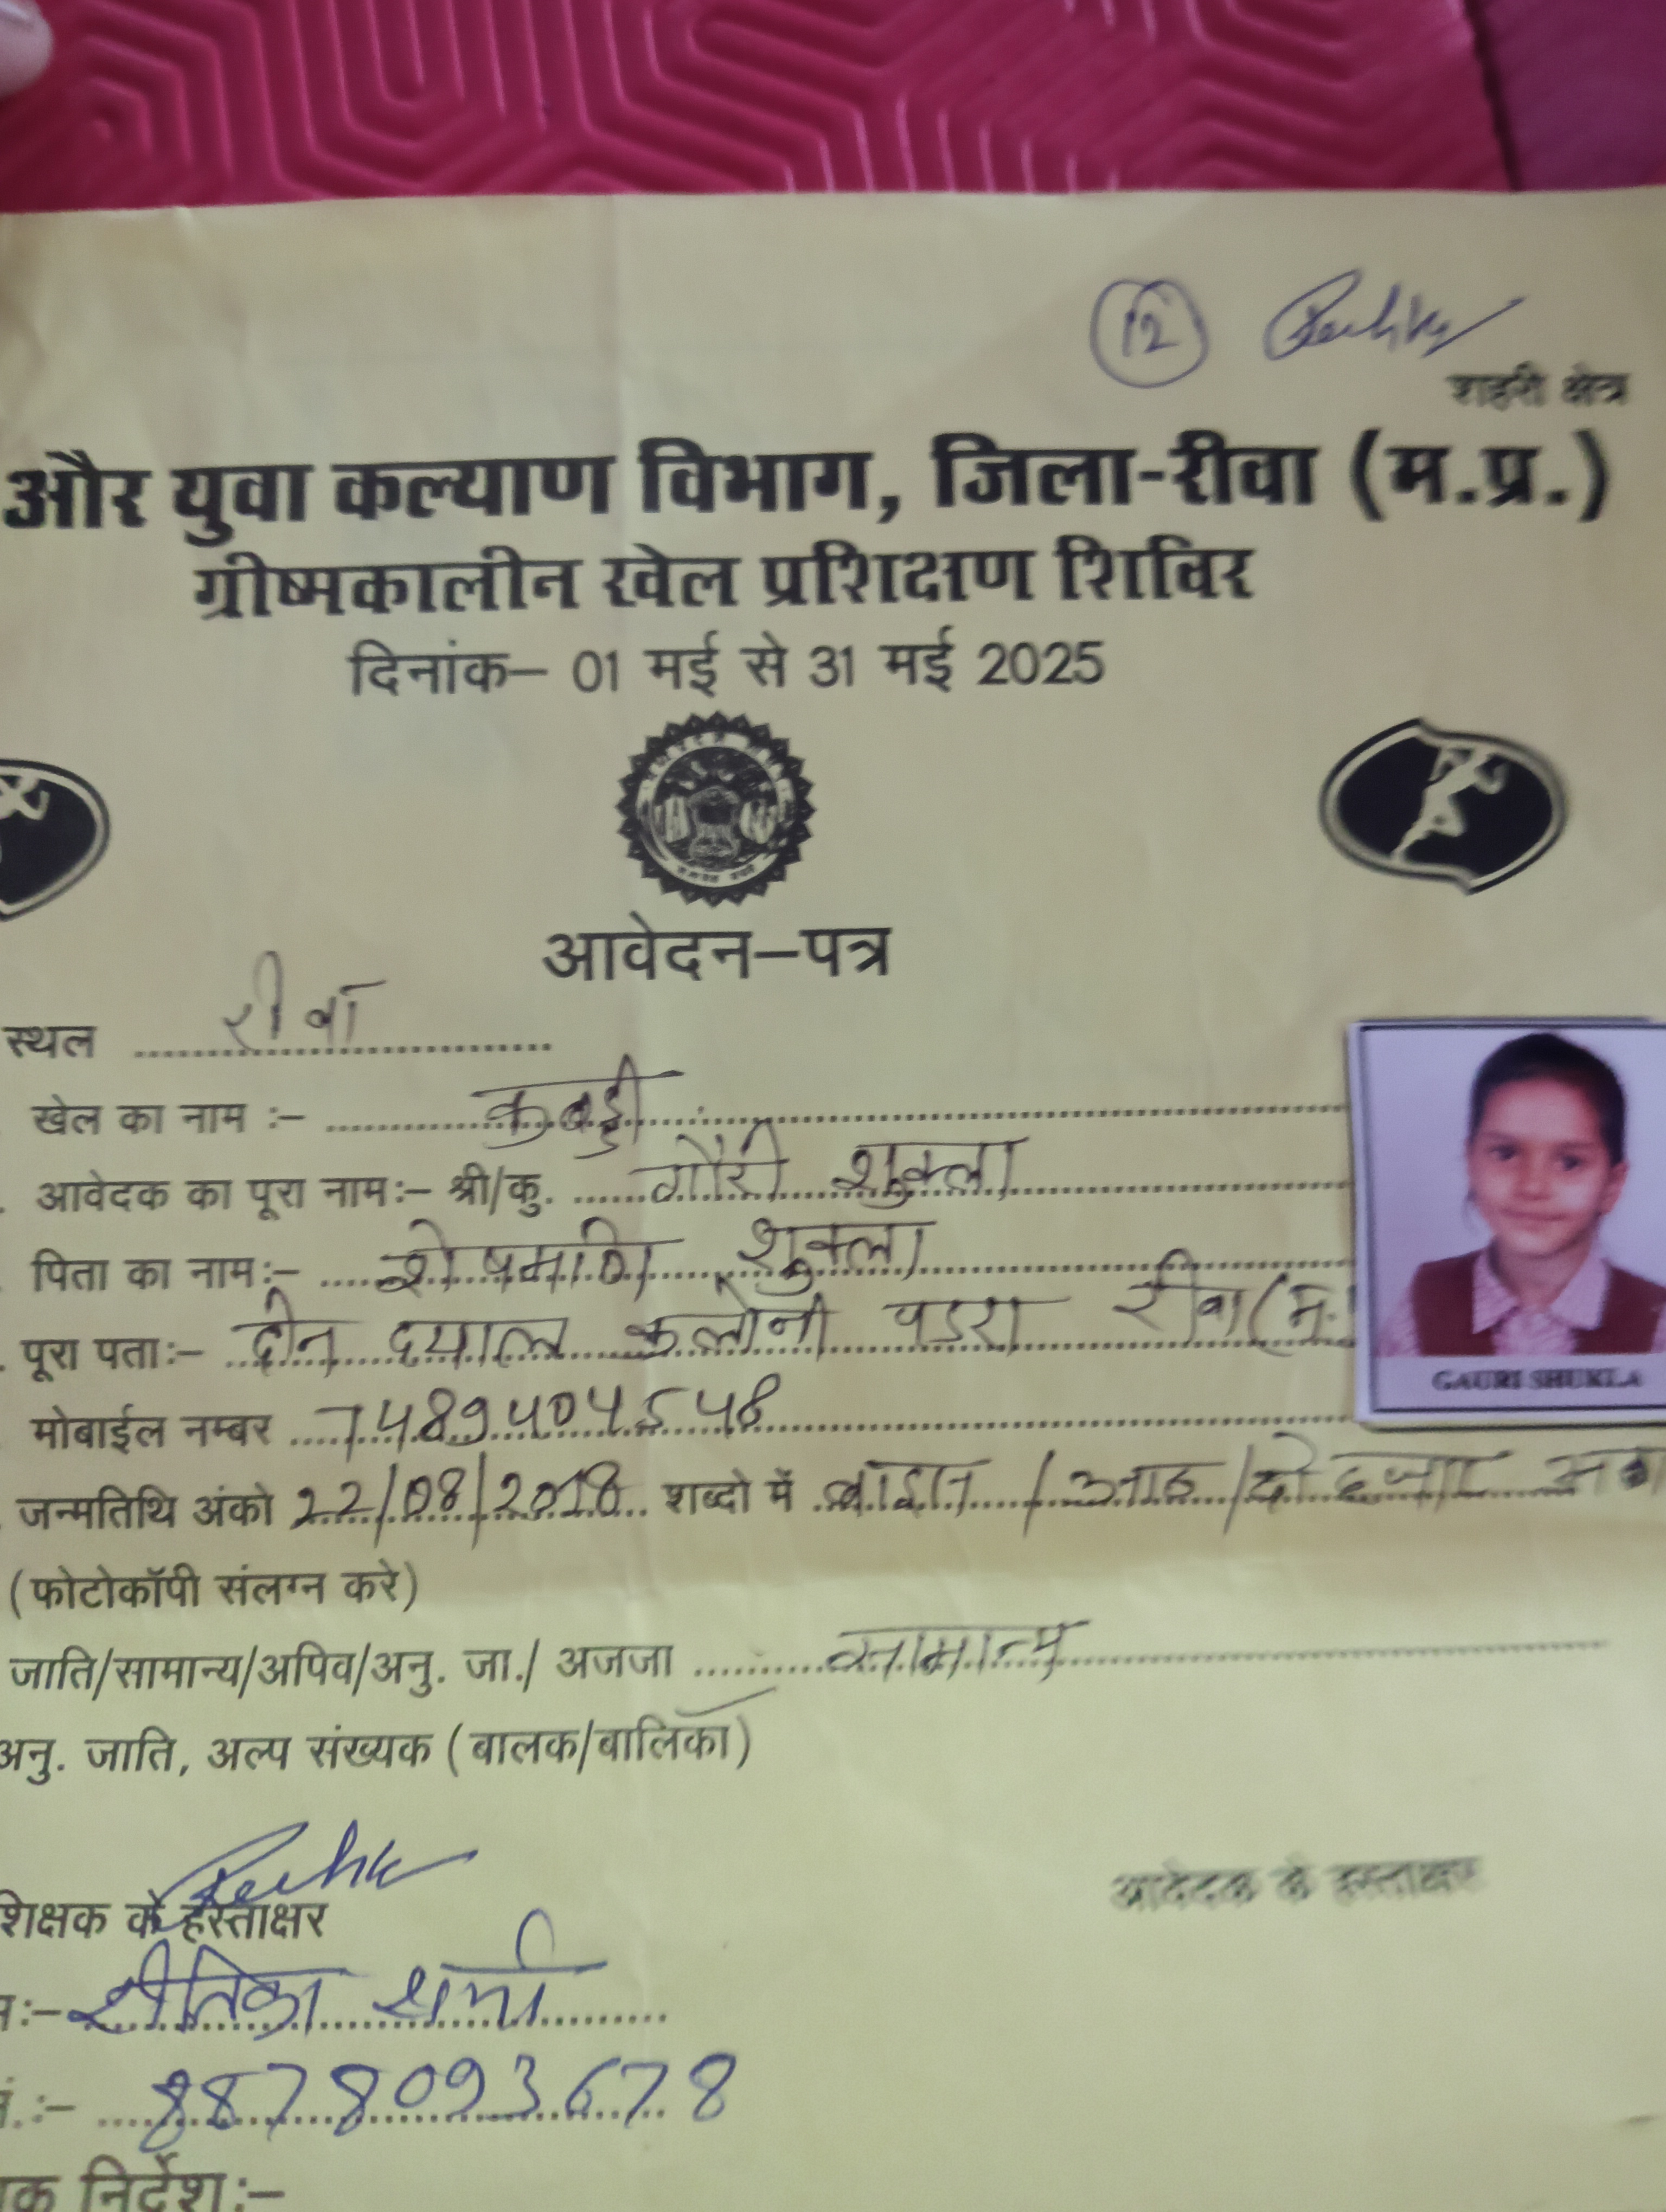 12
शहरी क्षेत्र
और युवा कल्याण विभाग, जिला-रीवा (म.प्र.)
ग्रीष्मकालीन खेल प्रशिक्षण शिविर
दिनांक– 01 मई से 31 मई 2025
आवेदन–पत्र
स्थल रीवा
खेल का नाम :– कबड्डी
आवेदक का पूरा नाम:– श्री/कु. गौरी शुक्ला
पिता का नाम:– शेषमणि शुक्ला
पूरा पता:– दीन दयाल कलोनी पडरा रीवा (म.
GAURI SHUKLA
मोबाईल नम्बर 7489404548
जन्मतिथि अंको 22/08/2018 शब्दो में बाइस /आठ/दो हजार
(फोटोकॉपी संलग्न करे)
जाति/सामान्य/अपिव/अनु. जा./ अजजा सामान्य
अनु. जाति, अल्प संख्यक (बालक/बालिका)
शिक्षक के हस्ताक्षर
आवेदक के हस्ताक्षर
:– रीतिका शर्मा
.:– 8878093678
निर्देश:–